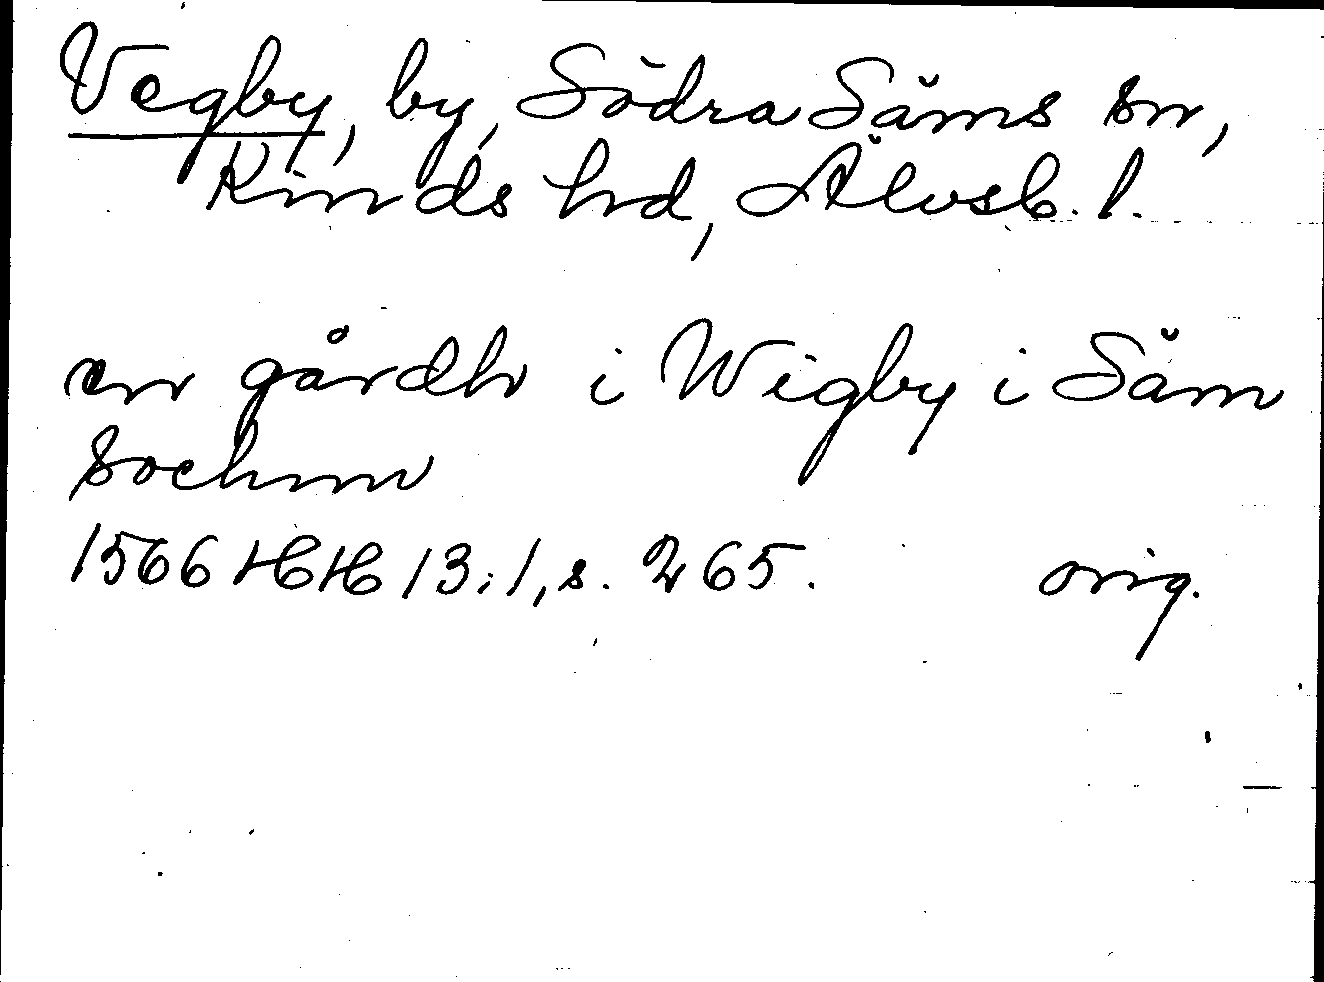 Vegby, by, Södra Säms sn,
Kinds hd, Älvsb. l.
en gårdh i Wigby i Säm
sochnn
1566 HH 13:1, s. 265. orig.